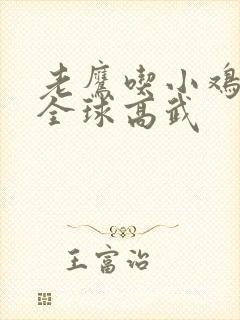 老鹰喫小鸡
全球高武
王富治